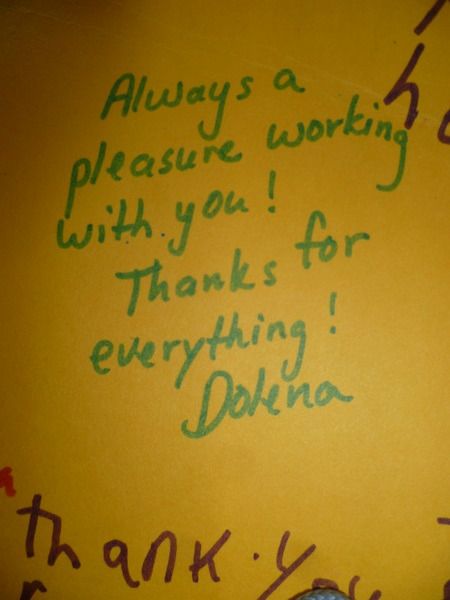 Always a
pleasure working
with you!
Thanks for
everything!
Dolena
thank.you